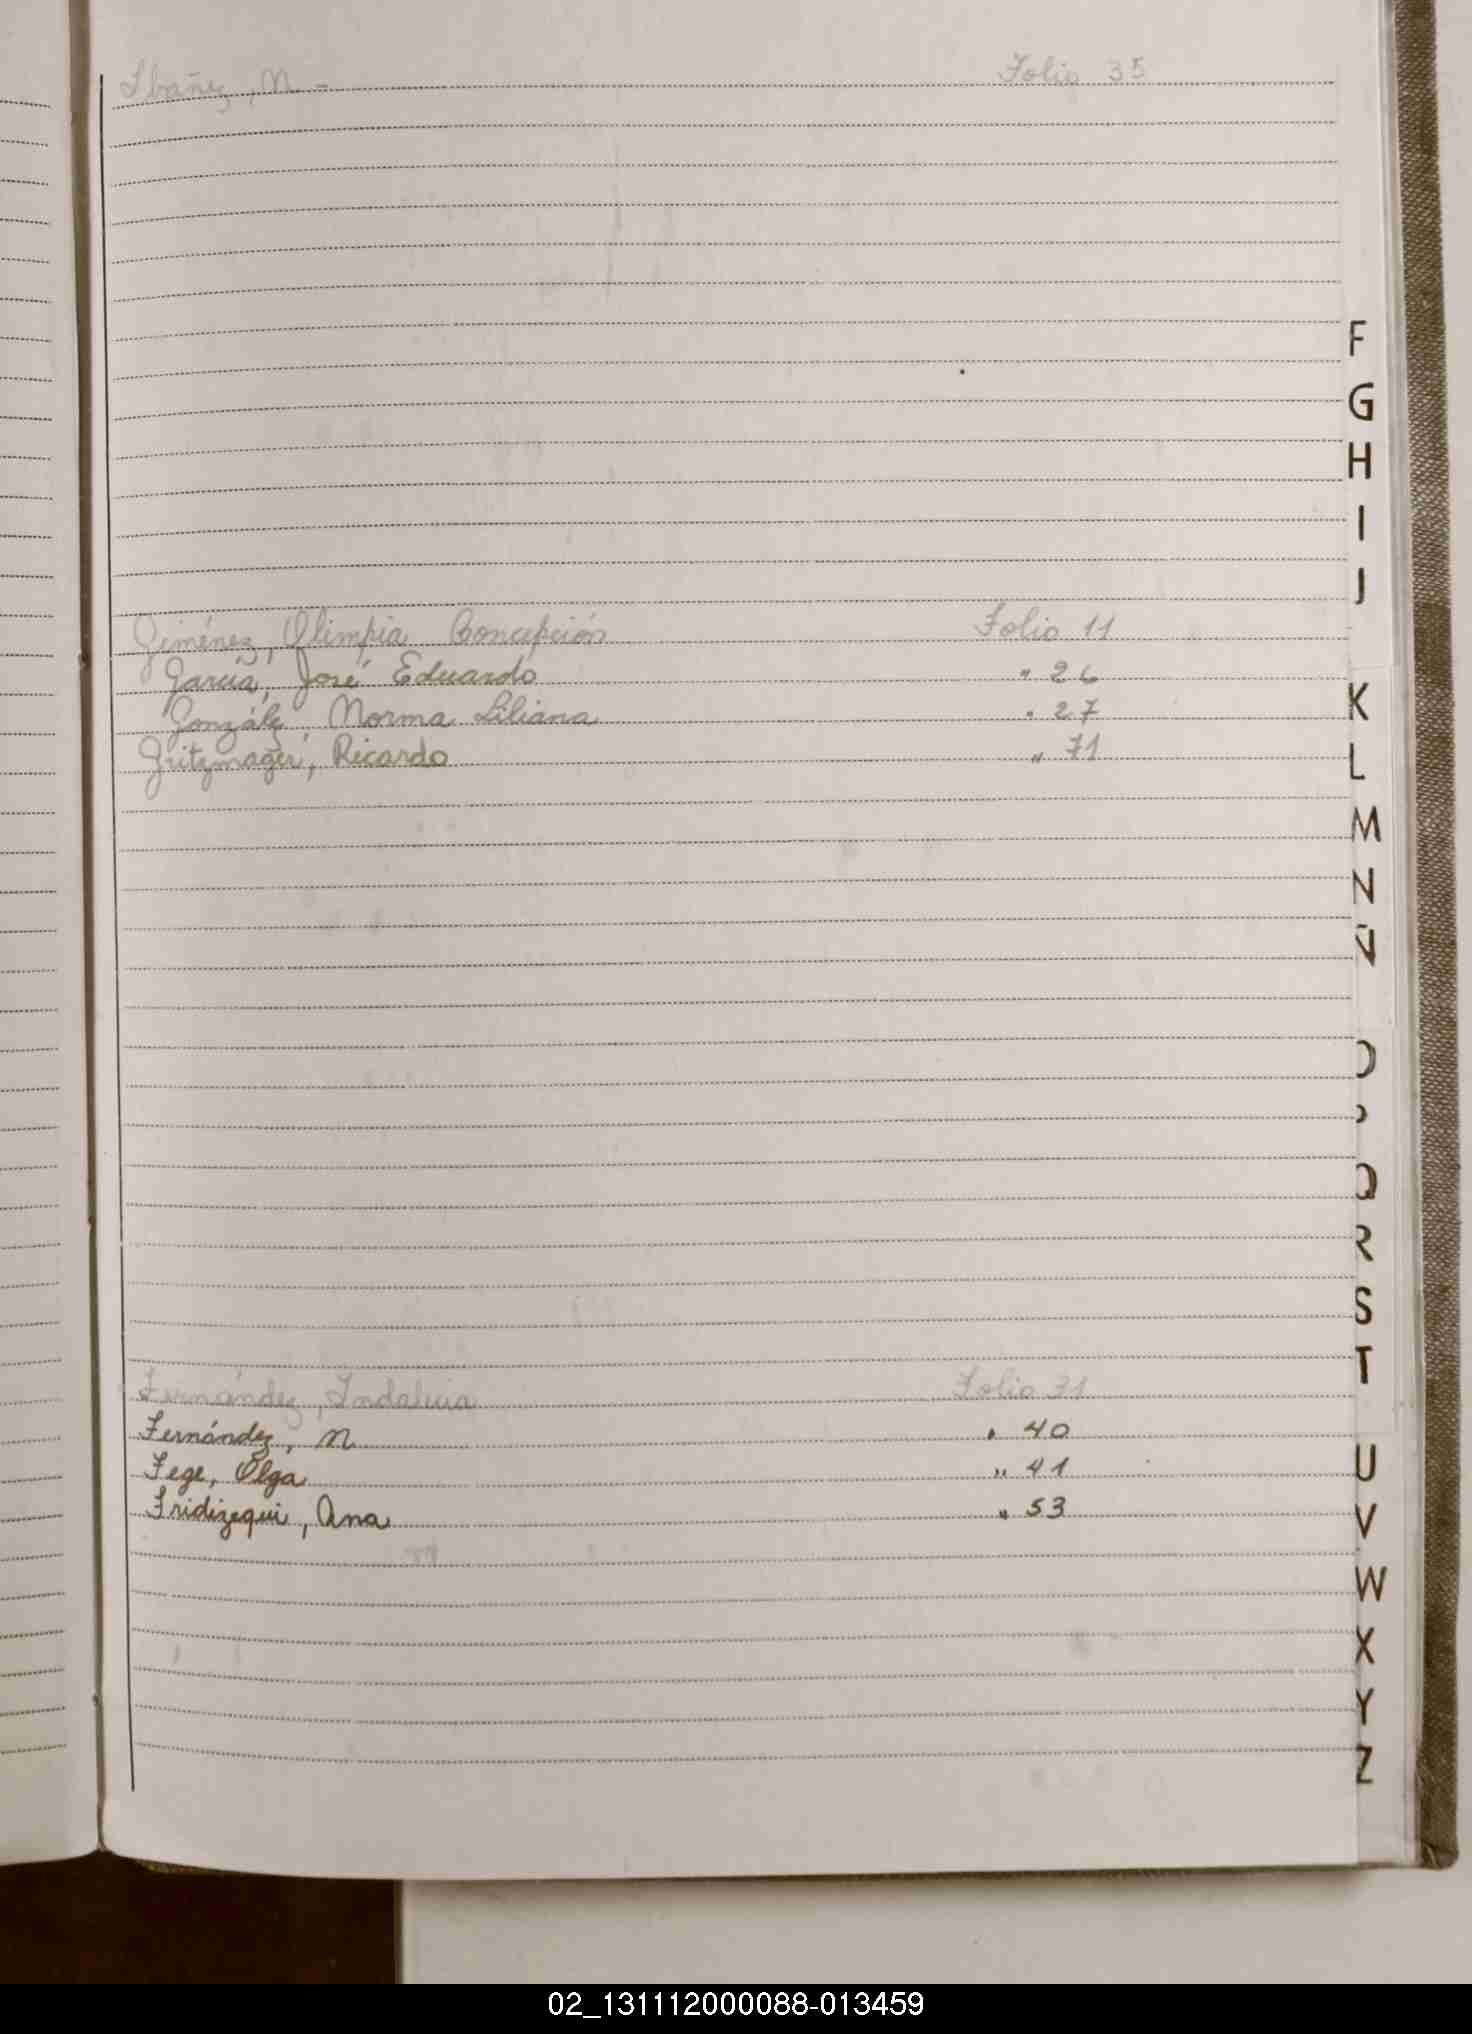 Ibáñez, N. - Folio 35
F
G
H
I
J
Giménez, Olimpia Concepción Folio 11
García, José Eduardo " 26
Gonzálz, Norma Liliana " 27
Gritzmager, Ricardo " 71
K
L
M
N
Ñ
O
P
Q
R
S
T
Fernández, Indalecia Folio 31
Fernándz, N " 40
Fege, Olga " 41
Fridizequi, Ana " 53
U
V
W
X
Y
Z
02_131112000088-013459